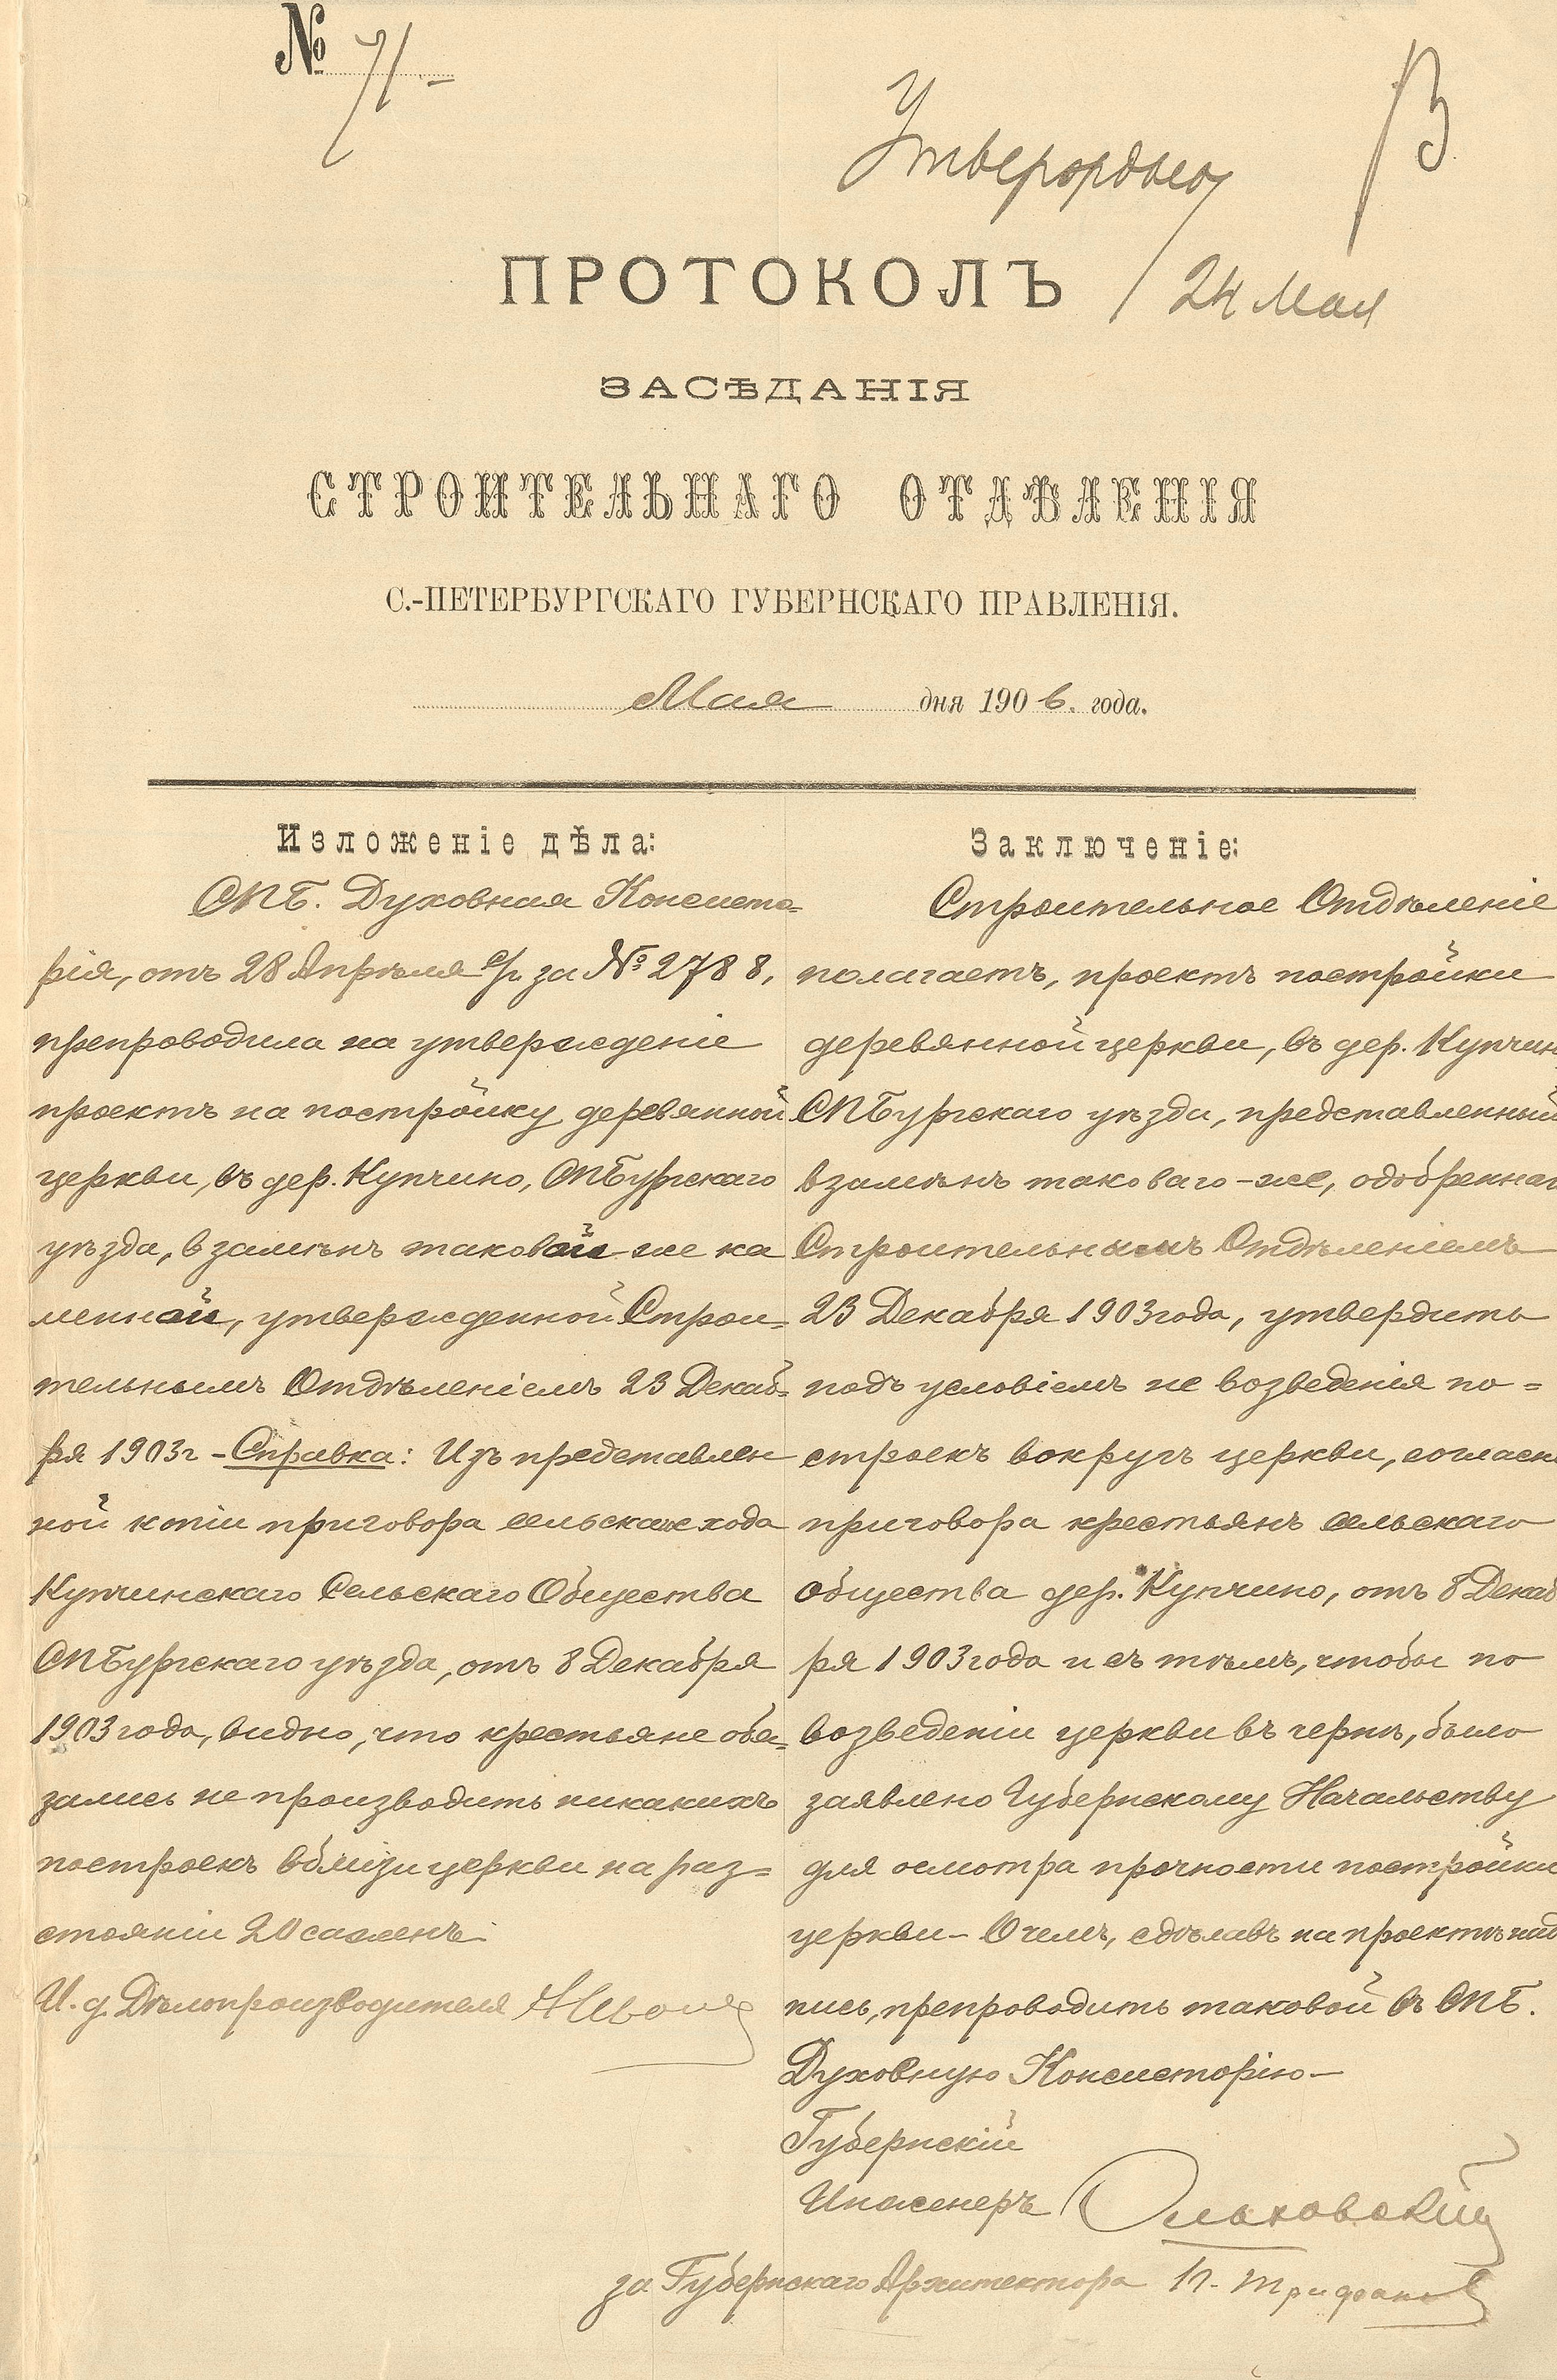 № 71-
Утверждаю
24 Мая
ПРОТОКОЛЪ
ЗАСѢДАНІЯ
СТРОИТЕЛЬНАГО ОТДѢЛЕНІЯ
С.-ПЕТЕРБУРГСКАГО ГУБЕРНСКАГО ПРАВЛЕНІЯ.
Мая дня 1906. года.
Изложеніе дѣла:
СПБ. Духовная Консисто=
рія, отъ 28 Апрѣля с/г за № 2788,
препроводила на утвержденіе
проектъ на постройку деревянной
церкви, въ дер. Купчино, СПБургскаго
уѣзда, взамѣнъ таковой-же ка
менной, утвержденной Строи=
тельнымъ Отдѣленіемъ 23 Декаб=
ря 1903г - Справка: Изъ представлен
ной копіи приговора сельскаго схода
Купчинскаго Сельскаго Общества
СПБургскаго уѣзда, отъ 8 Декабря
1903 года, видно, что крестьяне обя=
зались не производить никакихъ
построекъ вблизи церкви на раз=
стояніи 20 саженъ.
И. д. Дѣлопроизводителя
Заключеніе:
Строительное Отдѣленіе
полагаетъ, проектъ постройки
деревянной церкви, въ дер. Купчин
СПБургскаго уѣзда, представленный
взамѣнъ таковаго-же, одобреннаг
Строительнымъ Отдѣленіемъ
23 Декабря 1903 года, утвердить
подъ условіемъ не возведенія по=
строекъ вокругъ церкви, согласн
приговора крестьянъ сельскаго
общества дер. Купчино, отъ 8 Декаб
ря 1903 года и съ тѣмъ, чтобы по
возведеніи церкви въ чернѣ, было
заявлено Губернскому Начальству
для осмотра прочности постройки
церкви - О чемъ, сдѣлавъ на проектѣ над
пись, препроводить таковой въ СПБ.
Духовную Консисторію-
Губернскій
Инженеръ Ольховскій
за Губернскаго Архитектора П. Трифанов